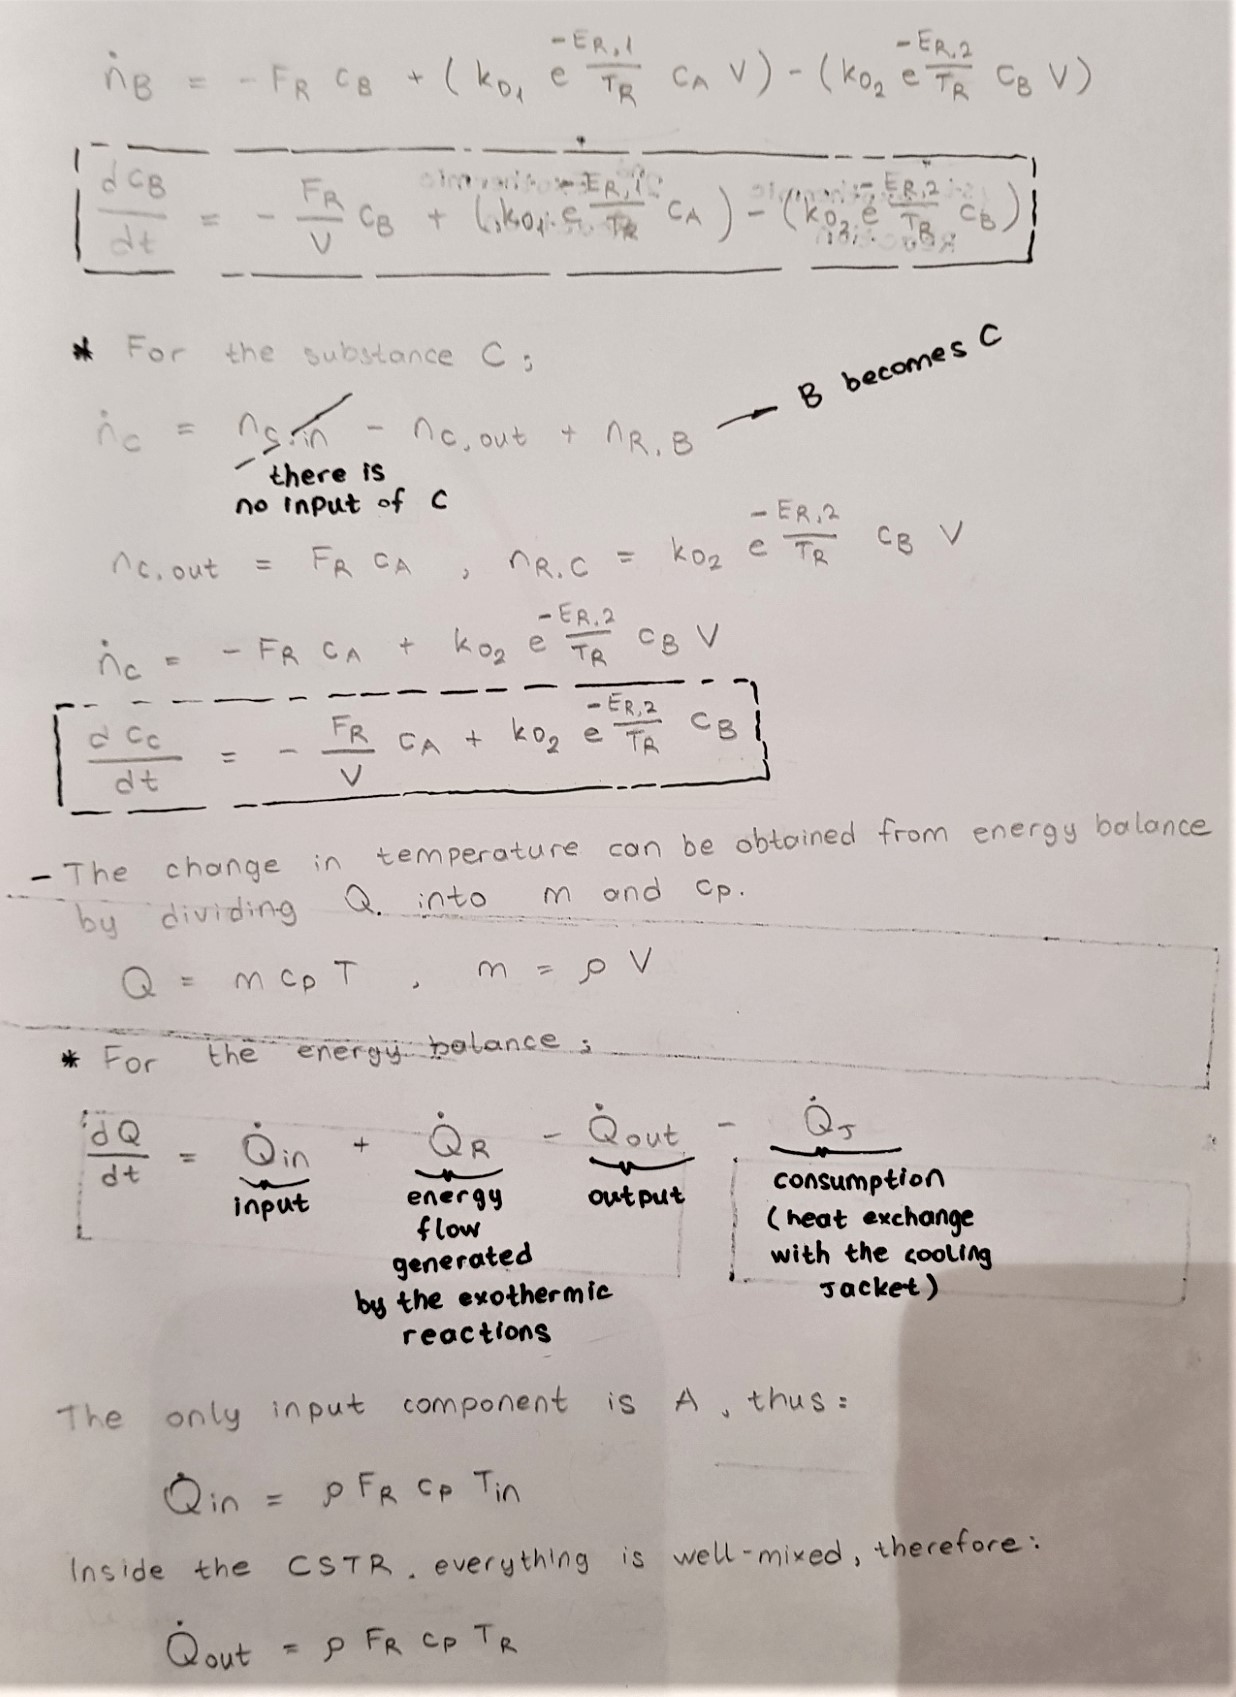 ṅB = - FR cB + (k01 e^(-ER,1/TR) cA V) - (k02 e^(-ER,2/TR) cB V)
dcB/dt = - FR/V cB + (k01 e^(-ER,1/TR) cA) - (k02 e^(-ER,2/TR) cB)
* For the substance C;
ṅC = nC,in - nC,out + nR,B → B becomes C
there is
no input of C
nC,out = FR cA , nR,C = k02 e^(-ER,2/TR) cB V
ṅC = - FR cA + k02 e^(-ER,2/TR) cB V
dcC/dt = - FR/V cA + k02 e^(-ER,2/TR) cB
- The change in temperature can be obtained from energy balance
by dividing Q. into m and cp.
Q = m cp T , m = ρ V
* For the energy balance;
dQ/dt = Q̇in + Q̇R - Q̇out - Q̇J
input
energy
flow
generated
by the exothermic
reactions
output
consumption
(heat exchange
with the cooling
Jacket)
The only input component is A, thus:
Q̇in = ρ FR cp Tin
Inside the CSTR, everything is well-mixed, therefore:
Q̇out = ρ FR cp TR